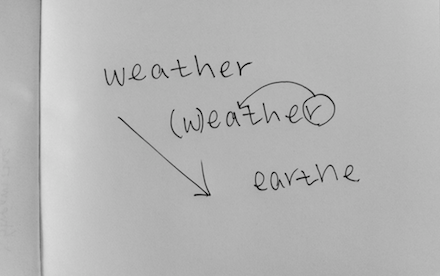 weather
(w)eather
earthe